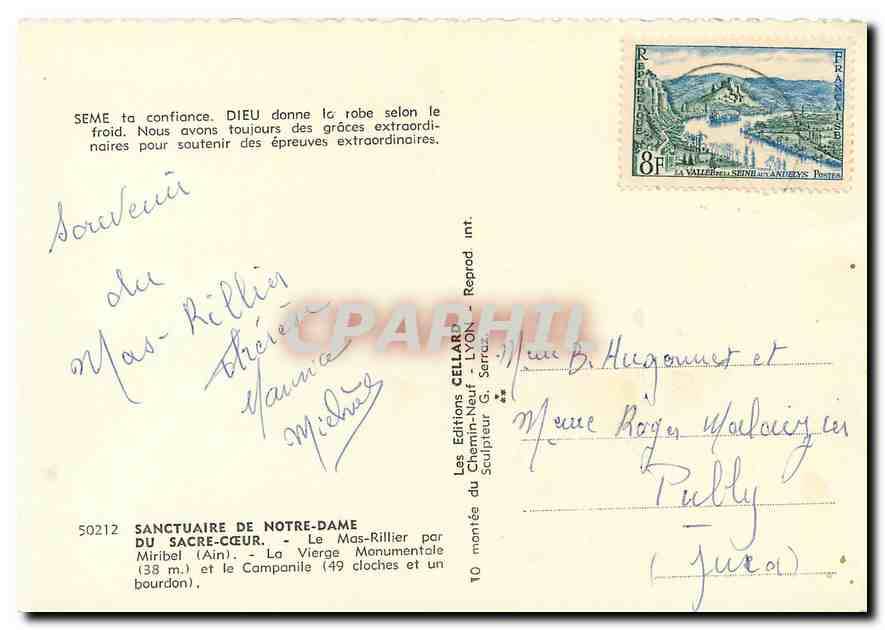 SEME ta confiance. DIEU donne la robe selon le
froid. Nous avons toujours des grâces extraordi-
naires pour soutenir des épreuves extraordinaires.
REPUBLIQUE
FRANÇAISE
8F
LA VALLÉE DE LA SEINE AUX ANDELYS POSTES
Souvenir
du
Mas-Rillier
Thérèse
Maurice
Michèle
CPAPHIL
Les Editions CELLARD
10 montée du Chemin-Neuf - LYON - Reprod. int.
Sculpteur G. Serraz.
Mme B. Hugonnet et
Mme Roger
(Jura)
50212 SANCTUAIRE DE NOTRE-DAME
DU SACRE-CŒUR. - Le Mas-Rillier par
Miribel (Ain). - La Vierge Monumentale
(38 m.) et le Campanile (49 cloches et un
bourdon).